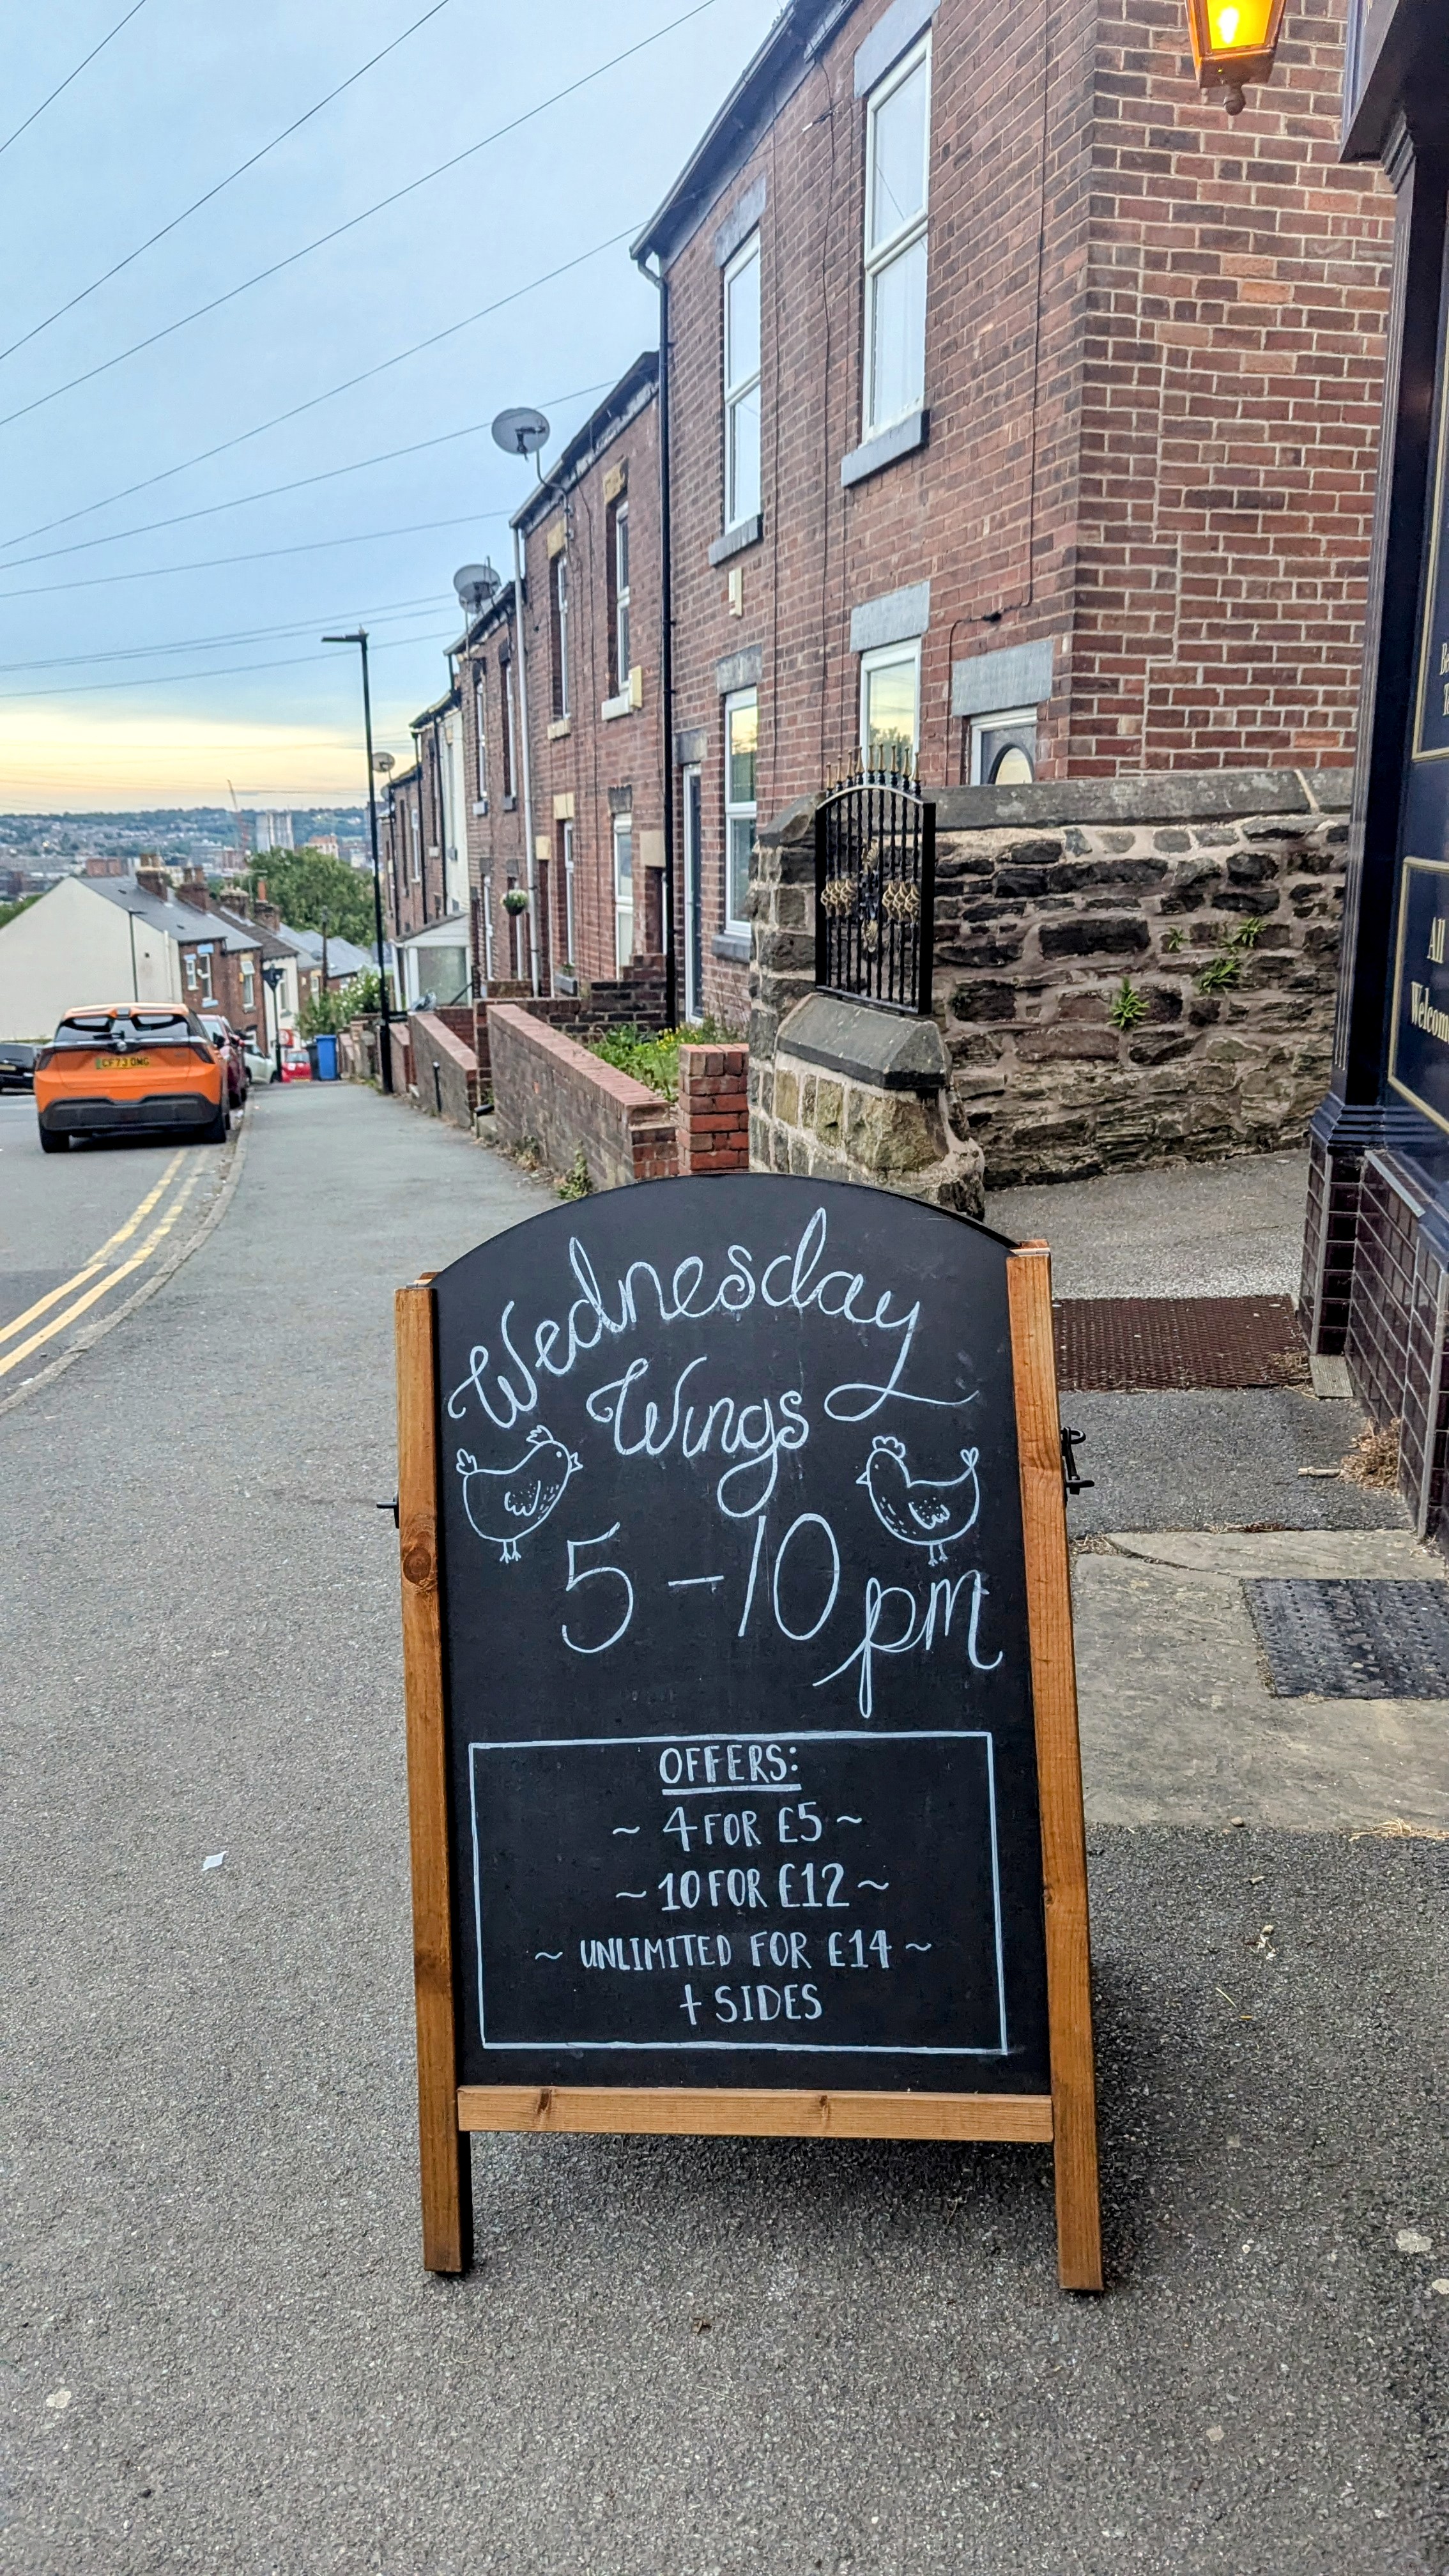 Wednesday
Wings
5-10pm
OFFERS:
~ 4 FOR £5 ~
~ 10 FOR £12 ~
~ UNLIMITED FOR £14 ~
+ SIDES
CF73 OMG
All
Welcome